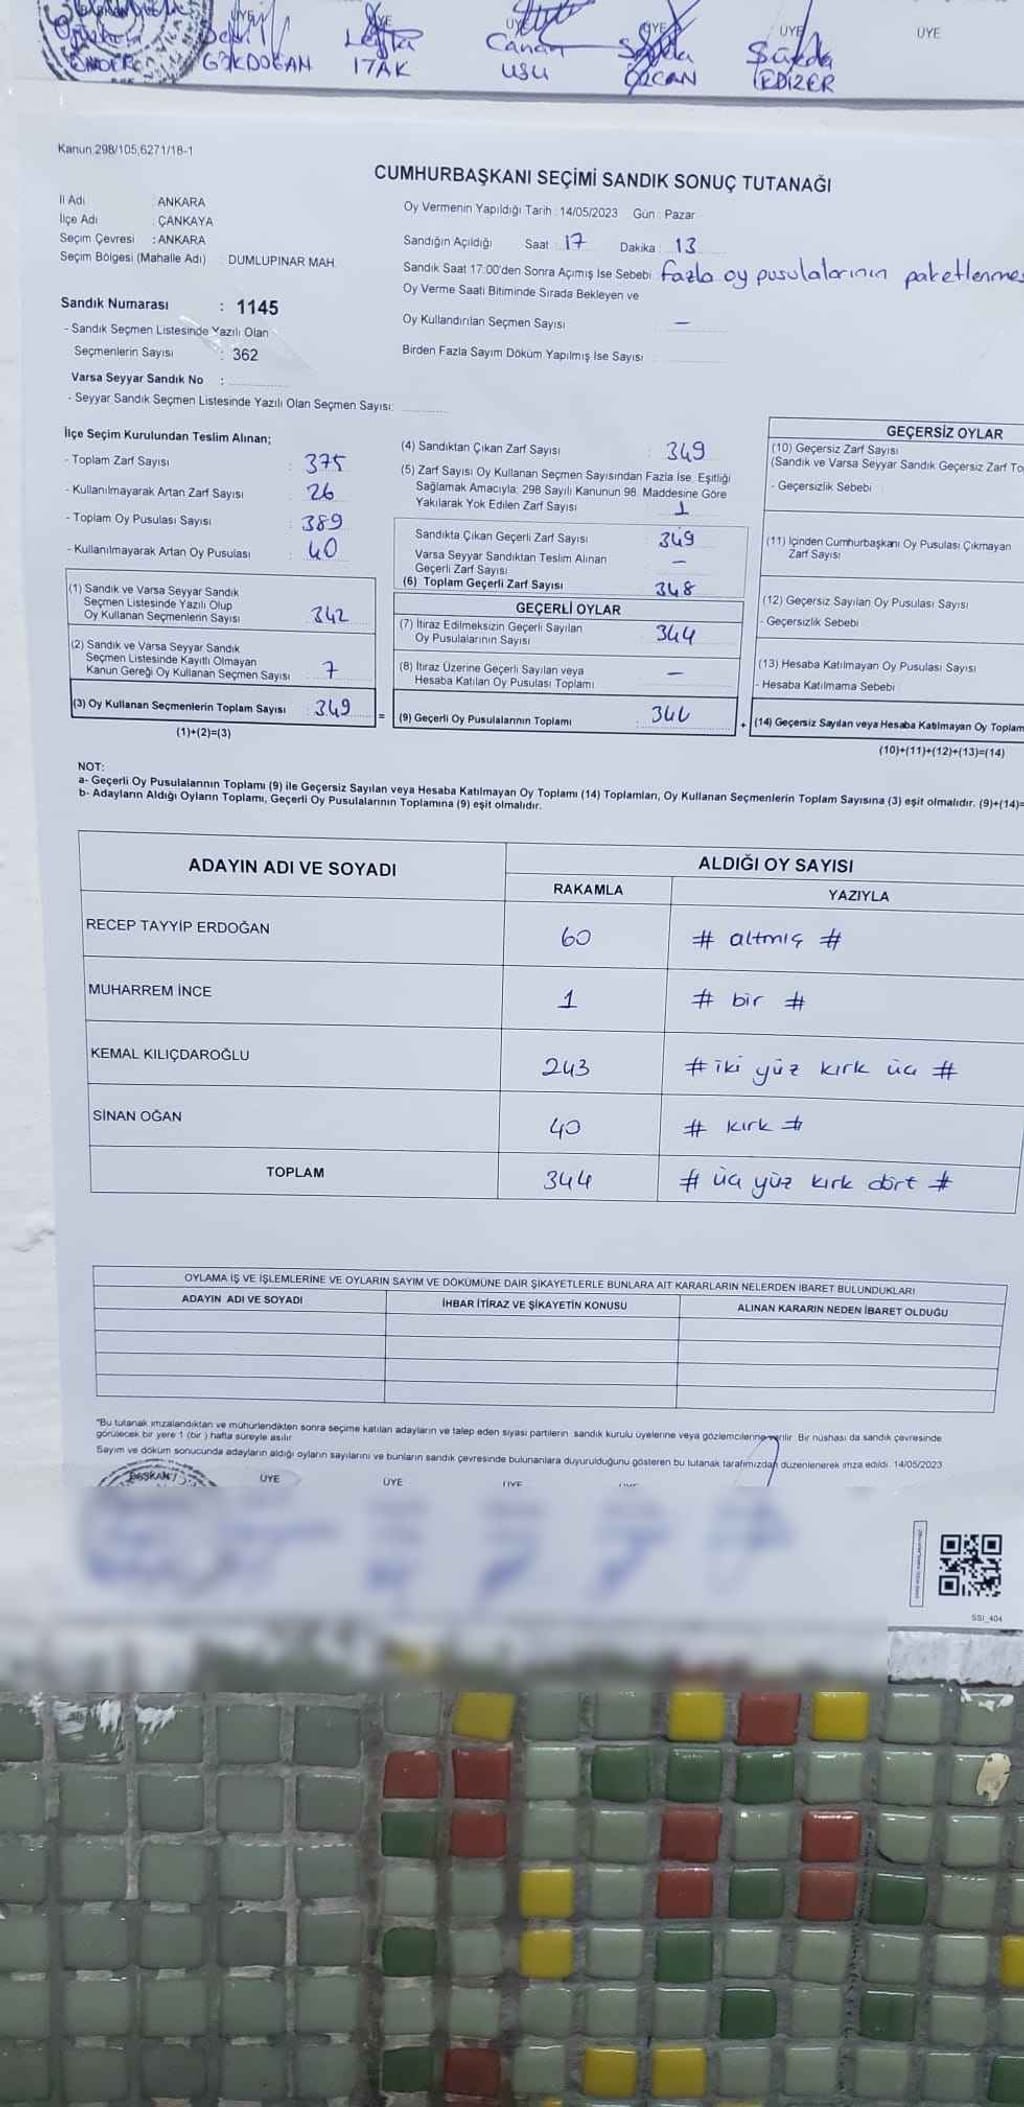 ÜYE
ÜYE
ÜYE
ÜYE
ÜYE
ÜYE
GÖKDOĞAN
Canan
USU
ÖZCAN
EDİZER
Kanun 298/105,6271/18-1
CUMHURBAŞKANI SEÇİMİ SANDIK SONUÇ TUTANAĞI
İl Adı : ANKARA
İlçe Adı : ÇANKAYA
Seçim Çevresi : ANKARA
Seçim Bölgesi (Mahalle Adı) : DUMLUPINAR MAH.
Oy Vermenin Yapıldığı Tarih : 14/05/2023 Gün : Pazar
Sandığın Açıldığı Saat : 17 Dakika : 13
Sandık Saat 17:00'den Sonra Açımış İse Sebebi : fazla oy pusulalarının paketlenmes
Oy Verme Saati Bitiminde Sırada Bekleyen ve
Oy Kullandırılan Seçmen Sayısı —
Birden Fazla Sayım Döküm Yapılmış İse Sayısı
Sandık Numarası : 1145
- Sandık Seçmen Listesinde Yazılı Olan
Seçmenlerin Sayısı : 362
Varsa Seyyar Sandık No :
- Seyyar Sandık Seçmen Listesinde Yazılı Olan Seçmen Sayısı:
İlçe Seçim Kurulundan Teslim Alınan;
- Toplam Zarf Sayısı : 375
- Kullanılmayarak Artan Zarf Sayısı : 26
- Toplam Oy Pusulası Sayısı : 389
- Kullanılmayarak Artan Oy Pusulası : 40
(1) Sandık ve Varsa Seyyar Sandık
Seçmen Listesinde Yazılı Olup
Oy Kullanan Seçmenlerin Sayısı : 342
(2) Sandık ve Varsa Seyyar Sandık
Seçmen Listesinde Kayıtlı Olmayan
Kanun Gereği Oy Kullanan Seçmen Sayısı : 7
(3) Oy Kullanan Seçmenlerin Toplam Sayısı : 349
(1)+(2)=(3)
=
(4) Sandıktan Çıkan Zarf Sayısı : 349
(5) Zarf Sayısı Oy Kullanan Seçmen Sayısından Fazla İse, Eşitliği
Sağlamak Amacıyla, 298 Sayılı Kanunun 98. Maddesine Göre
Yakılarak Yok Edilen Zarf Sayısı : 1
Sandıkta Çıkan Geçerli Zarf Sayısı : 349
Varsa Seyyar Sandıktan Teslim Alınan
Geçerli Zarf Sayısı : —
(6) Toplam Geçerli Zarf Sayısı 348
GEÇERLİ OYLAR
(7) İtiraz Edilmeksizin Geçerli Sayılan
Oy Pusulalarının Sayısı : 344
(8) İtiraz Üzerine Geçerli Sayılan veya
Hesaba Katılan Oy Pusulası Toplamı : —
(9) Geçerli Oy Pusulalarının Toplamı : 344
+
GEÇERSİZ OYLAR
(10) Geçersiz Zarf Sayısı
(Sandık ve Varsa Seyyar Sandık Geçersiz Zarf To
- Geçersizlik Sebebi
(11) İçinden Cumhurbaşkanı Oy Pusulası Çıkmayan
Zarf Sayısı
(12) Geçersiz Sayılan Oy Pusulası Sayısı
- Geçersizlik Sebebi
(13) Hesaba Katılmayan Oy Pusulası Sayısı
- Hesaba Katılmama Sebebi
(14) Geçersiz Sayılan veya Hesaba Katılmayan Oy Toplam
(10)+(11)+(12)+(13)=(14)
NOT:
a- Geçerli Oy Pusulalarının Toplamı (9) ile Geçersiz Sayılan veya Hesaba Katılmayan Oy Toplamı (14) Toplamları, Oy Kullanan Seçmenlerin Toplam Sayısına (3) eşit olmalıdır. (9)+(14)=
b- Adayların Aldığı Oyların Toplamı, Geçerli Oy Pusulalarının Toplamına (9) eşit olmalıdır.
ADAYIN ADI VE SOYADI ALDIĞI OY SAYISI
RAKAMLA YAZIYLA
RECEP TAYYİP ERDOĞAN 60 # altmış #
MUHARREM İNCE 1 # bir #
KEMAL KILIÇDAROĞLU 243 # iki yüz kırk üç #
SİNAN OĞAN 40 # kırk #
TOPLAM 344 # üç yüz kırk dört #
OYLAMA İŞ VE İŞLEMLERİNE VE OYLARIN SAYIM VE DÖKÜMÜNE DAİR ŞİKAYETLERLE BUNLARA AİT KARARLARIN NELERDEN İBARET BULUNDUKLARI
ADAYIN ADI VE SOYADI İHBAR İTİRAZ VE ŞİKAYETİN KONUSU ALINAN KARARIN NEDEN İBARET OLDUĞU
"Bu tutanak imzalandıktan ve mühürlendikten sonra seçime katılan adayların ve talep eden siyasi partilerin sandık kurulu üyelerine veya gözlemcilerine verilir. Bir nüshası da sandık çevresinde
görülecek bir yere 1 (bir) hafta süreyle asılır.
Sayım ve döküm sonucunda adayların aldığı oyların sayılarını ve bunların sandık çevresinde bulunanlara duyurulduğunu gösteren bu tutanak tarafımızdan düzenlenerek imza edildi. 14/05/2023
BAŞKAN ÜYE ÜYE ÜYE
SSI_404